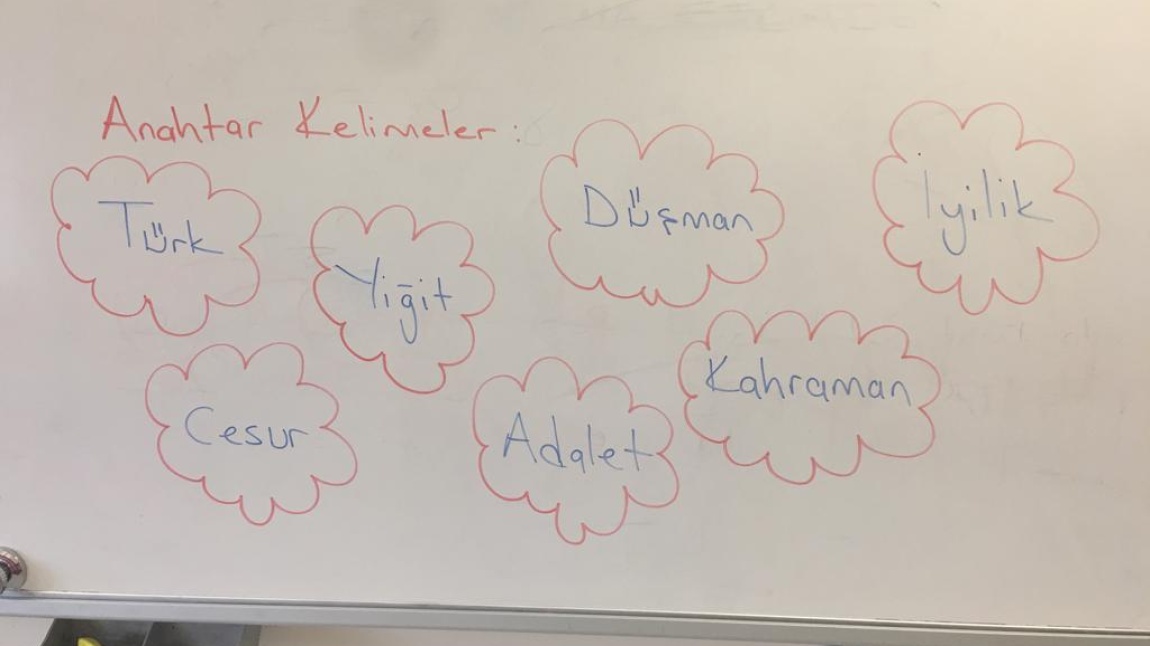 Anahtar Kelimeler:
Türk
Yiğit
Düşman
İyilik
Cesur
Adalet
Kahraman